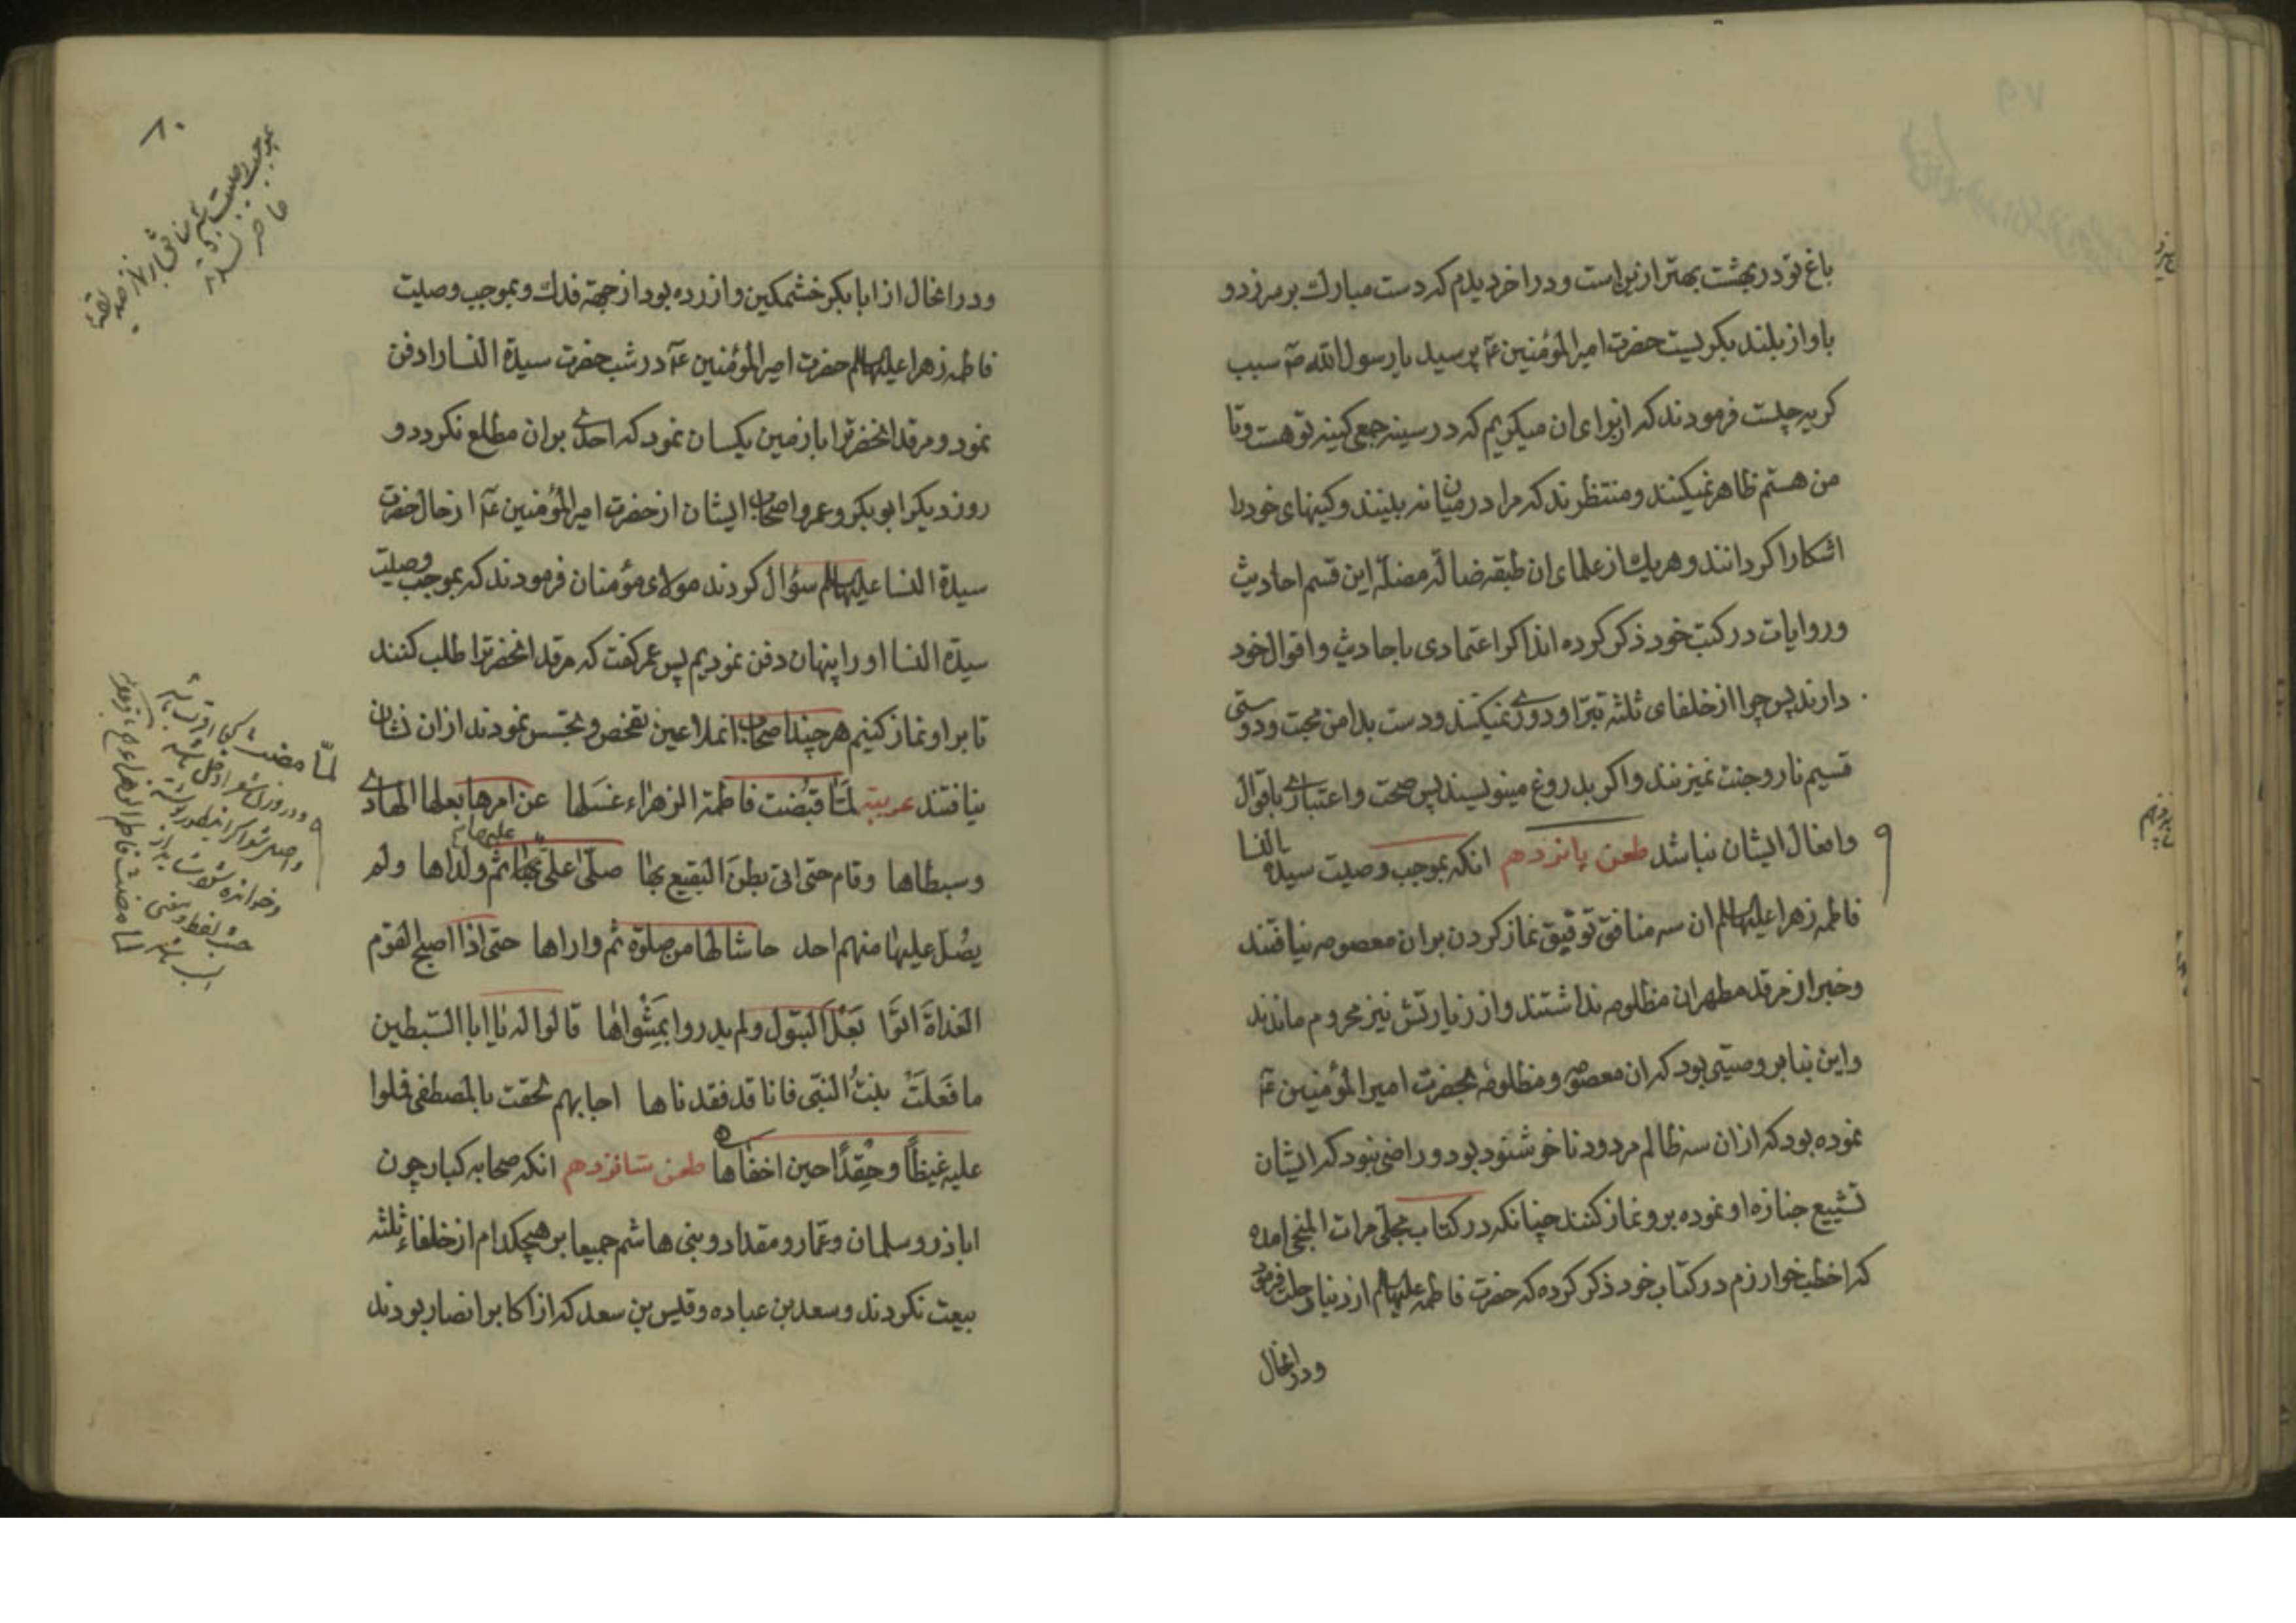 باغ تو در بهشت بهتر ازین است و در اخر دیدم که دست مبارک بر سر زد و
باواز بلند بکریست حضرت امیرالمؤمنین ع پرسید یا رسول الله ص سبب
کریه چیست فرمودند که از برای ان میکریم که در سینه جمعی کینه تو هست و تا
من هستم ظاهر نمیکنند و منتظرند که مرا در میان نه بینند و کینهای خود را
اشکارا کردانند و هر یک از علمای ان طبقه ضاله مضله این قسم احادیث
و روایات در کتب خود ذکر کرده اند اکر اعتمادی باحادیث و اقوال خود
دارند پس چرا از خلفای ثلثه تبرا و دوری نمیکنند و دست بدامن محبت و دوستی
قسیم نار و جنت نمیزنند و اکر بدروغ مینویسند پس صحت و اعتباری باقوال
و افعال ایشان نباشد طعن پانزدهم انکه بموجب وصیت سیدة النسا
فاطمه زهرا علیها السلم ان سه منافق توفیق نماز کردن بران معصومه نیافتند
و خبر از مرقد مطهر ان مظلومه نداشتند و از زیارتش نیز محروم ماندند
و این بنابر وصیتی بود که ان معصومه و مظلومه بحضرت امیرالمؤمنین ع
نموده بود که از ان سه ظالم مردود ناخوشنود بود و راضی نبود که ایشان
تشییع جنازه او نموده برو نماز کنند چنانکه در کتاب مجلی مرات المنجی امده
که اخطب خوارزم در کتاب خود ذکر کرده که حضرت فاطمه علیها السلم از دنیا رحلت فرمود
و درانحال
۸۰
و درانحال از ابابکر خشمکین و ازرده بود از جهة فدک و بموجب وصیت
فاطمه زهرا علیها السلم حضرت امیرالمؤمنین ع در شب حضرت سیدة النسا را دفن
نمود و مرقد انحضرترا با زمین یکسان نمود که احدی بران مطلع نکردد و
روز دیکر ابوبکر و عمر و اصحاب ایشان از حضرت امیرالمؤمنین ع از حال حضرت
سیدة النسا علیها السلم سؤال کردند مولای مؤمنان فرمودند که بموجب وصیت
سیدة النسا او را پنهان دفن نمودیم پس عمر کفت که مرقد انحضرترا طلب کنند
تا بر او نماز کنیم هر چند اصحاب ان ملاعین تفحص و تجسس نمودند از ان نشان
نیافتند عربیة لمّا قبُضت فاطمة الزهراء غسَلها عن امرها بعلها الهادی
و سبطاها وقام حتی اتی بطنَ البقیع بها صلّی علی ثم ولداها ولم
یصُل علیها منهم احد حاشا لها من صلوة ثم واراها حتی اذا اصبح القوم
الغداةَ اتوَا بَعْلَ البتول ولم یدروا بمَثْواها قالوا له یا ابا السّبطین
ما فَعَلَتْ بنتُ النّبی فانا قد فقدناها اجابهم لحقت بالمصطفی فلوا
علیه غیظاً وحِقدًا حین اخفاها طعن شانزدهم انکه صحابه کبار چون
اباذر و سلمان و عمّار و مقداد و بنی هاشم جمیعا بر هیچکدام از خلفاء ثلثه
بیعت نکردند و سعد بن عباده و قیس بن سعد که از اکابر انصار بودند
لمّا مضت
لما مضت فاطم الزهراء